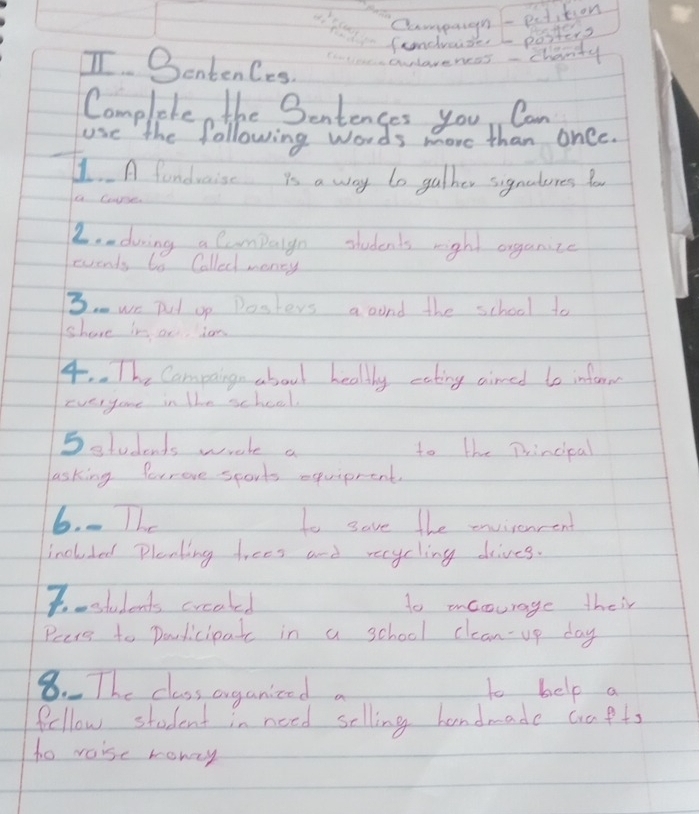 Campaign - Petition
fundraise - posters
awareness - charity
II - Sentences.
Complete the Sentences you Can
use the following words more than once.
1.- A fundraise is a way to gather signatures for
a cause.
2.- during a Campaign students might organize
events to Collect money
3.- we put up Posters a ound the school to
share
4.- The Campaing about healthy eating aimed to inform
everyone in the school.
5 students wrote a to the Principal
asking for more sports equipment.
6.- The to save the environment
included Planting trees and recycling drives.
7.- students created to encourage their
Peers to Participate in a school clean-up day
8.- The class organized a to help a
fellow student in need selling handmade crafts
to raise money